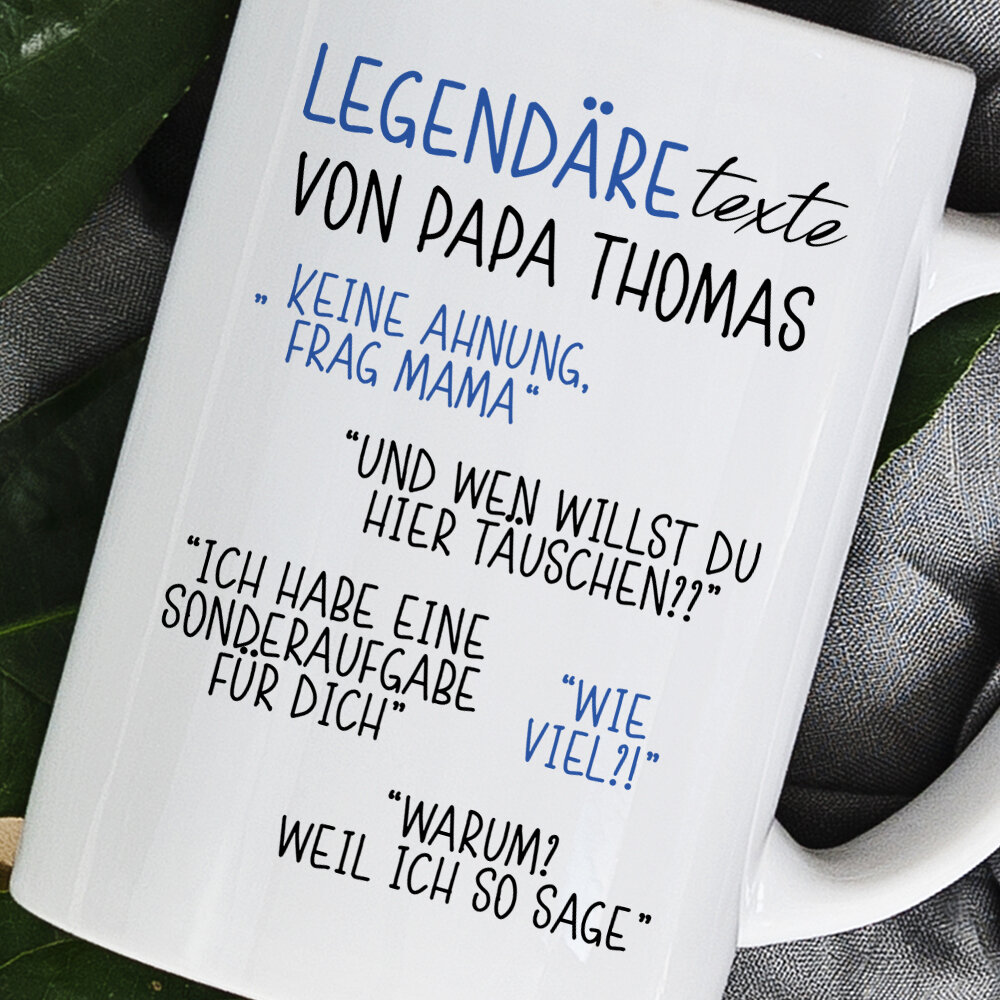 LEGENDÄRE texte
VON PAPA THOMAS
„ KEINE AHNUNG,
FRAG MAMA“
“UND WEN WILLST DU
HIER TÄUSCHEN??”
“ICH HABE EINE
SONDERAUFGABE
FÜR DICH”
“WIE
VIEL?!”
“WARUM?
WEIL ICH SO SAGE”